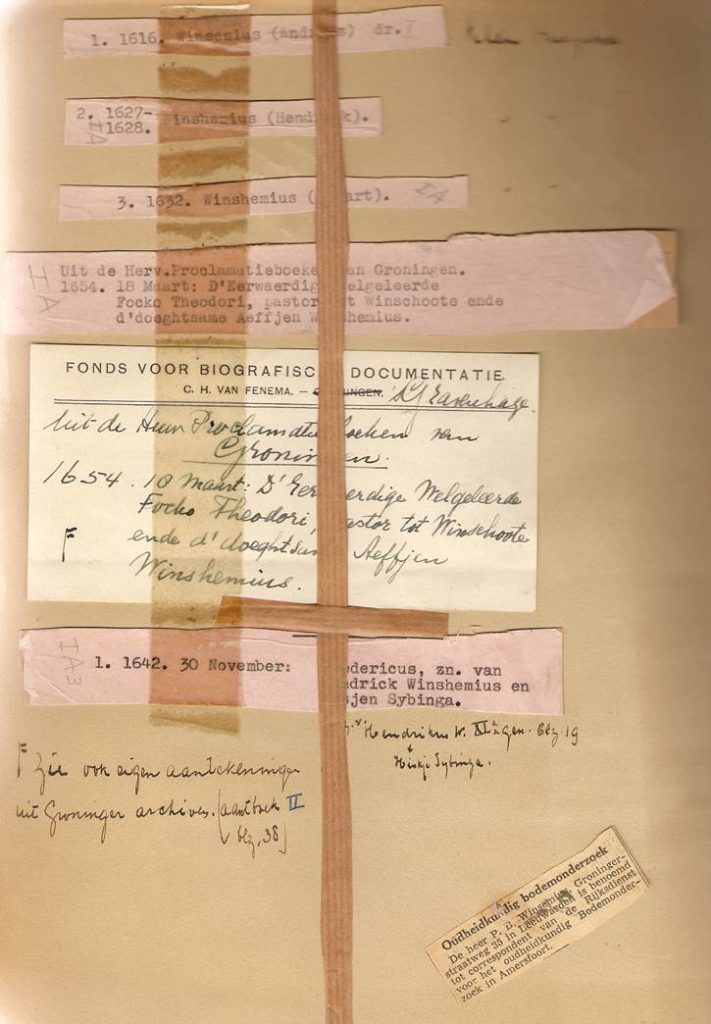 1. 1616. Winsemius (Andreas) dr. I
2. 1627-
1628. Winshemius (Hendrick).
IA
3. 1632. Winshemius ( art). IA
Uit de Herv.Proclamatieboeken van Groningen.
1654. 18 Maart: D'Eerwaerdige Welgeleerde
Focko Theodori, pastor tot Winschoote ende
d'doeghtsame Aeffjen Winshemius.
IA
FONDS VOOR BIOGRAFISCHE DOCUMENTATIE.
C. H. VAN FENEMA. — GRONINGEN. 's Gravenhage.
Uit de Herv Proclamatieboeken van
Groningen.
1654. 18 Maart: D'Eerwaerdige Welgeleerde
Focko Theodori, pastor tot Winschoote
F ende d'doeghtsame Aeffjen
Winshemius.
IA3
1. 1642. 30 November: edericus, zn. van
ndrick Winshemius en
sjen Sybinga.
z.v. Hendrikus W. XIe gen. blz 19
+ Hiskje Sybinga.
F Zie ook eigen aantekeningen
uit Groninger archieven. (aantboek II
blz. 38)
Oudheidkundig bodemonderzoek
De heer P. B. Winsemius, Groninger-
straatweg 35 in Leeuwarden is benoemd
tot correspondent van de Rijksdienst
voor het oudheidkundig Bodemonder-
zoek in Amersfoort.